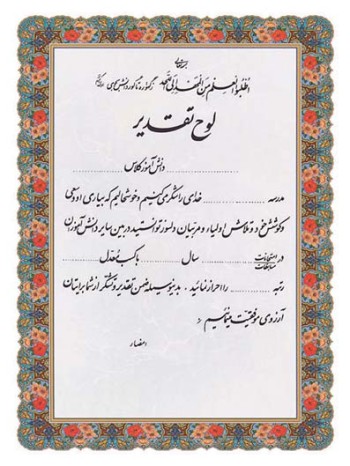 بسمه تعالی
اطلبوا العلم من المهد الی اللحد ز گهواره تا گور دانش بجوی
لوح تقدیر
دانش آموز کلاس
مدرسه خدای را شکر می کنیم و خوشحالیم که بیاری او و سعی
و کوشش خود و تلاش اولیاء و مربیان دلسوز توانستید در بین سایر دانش آموزان
در امتحانات مسابقات سال با کسب معدل
رتبه را احراز نمائید . بدینوسیله ضمن تقدیر و تشکر از شما برایتان
آرزوی موفقیت مینمائیم
امضاء